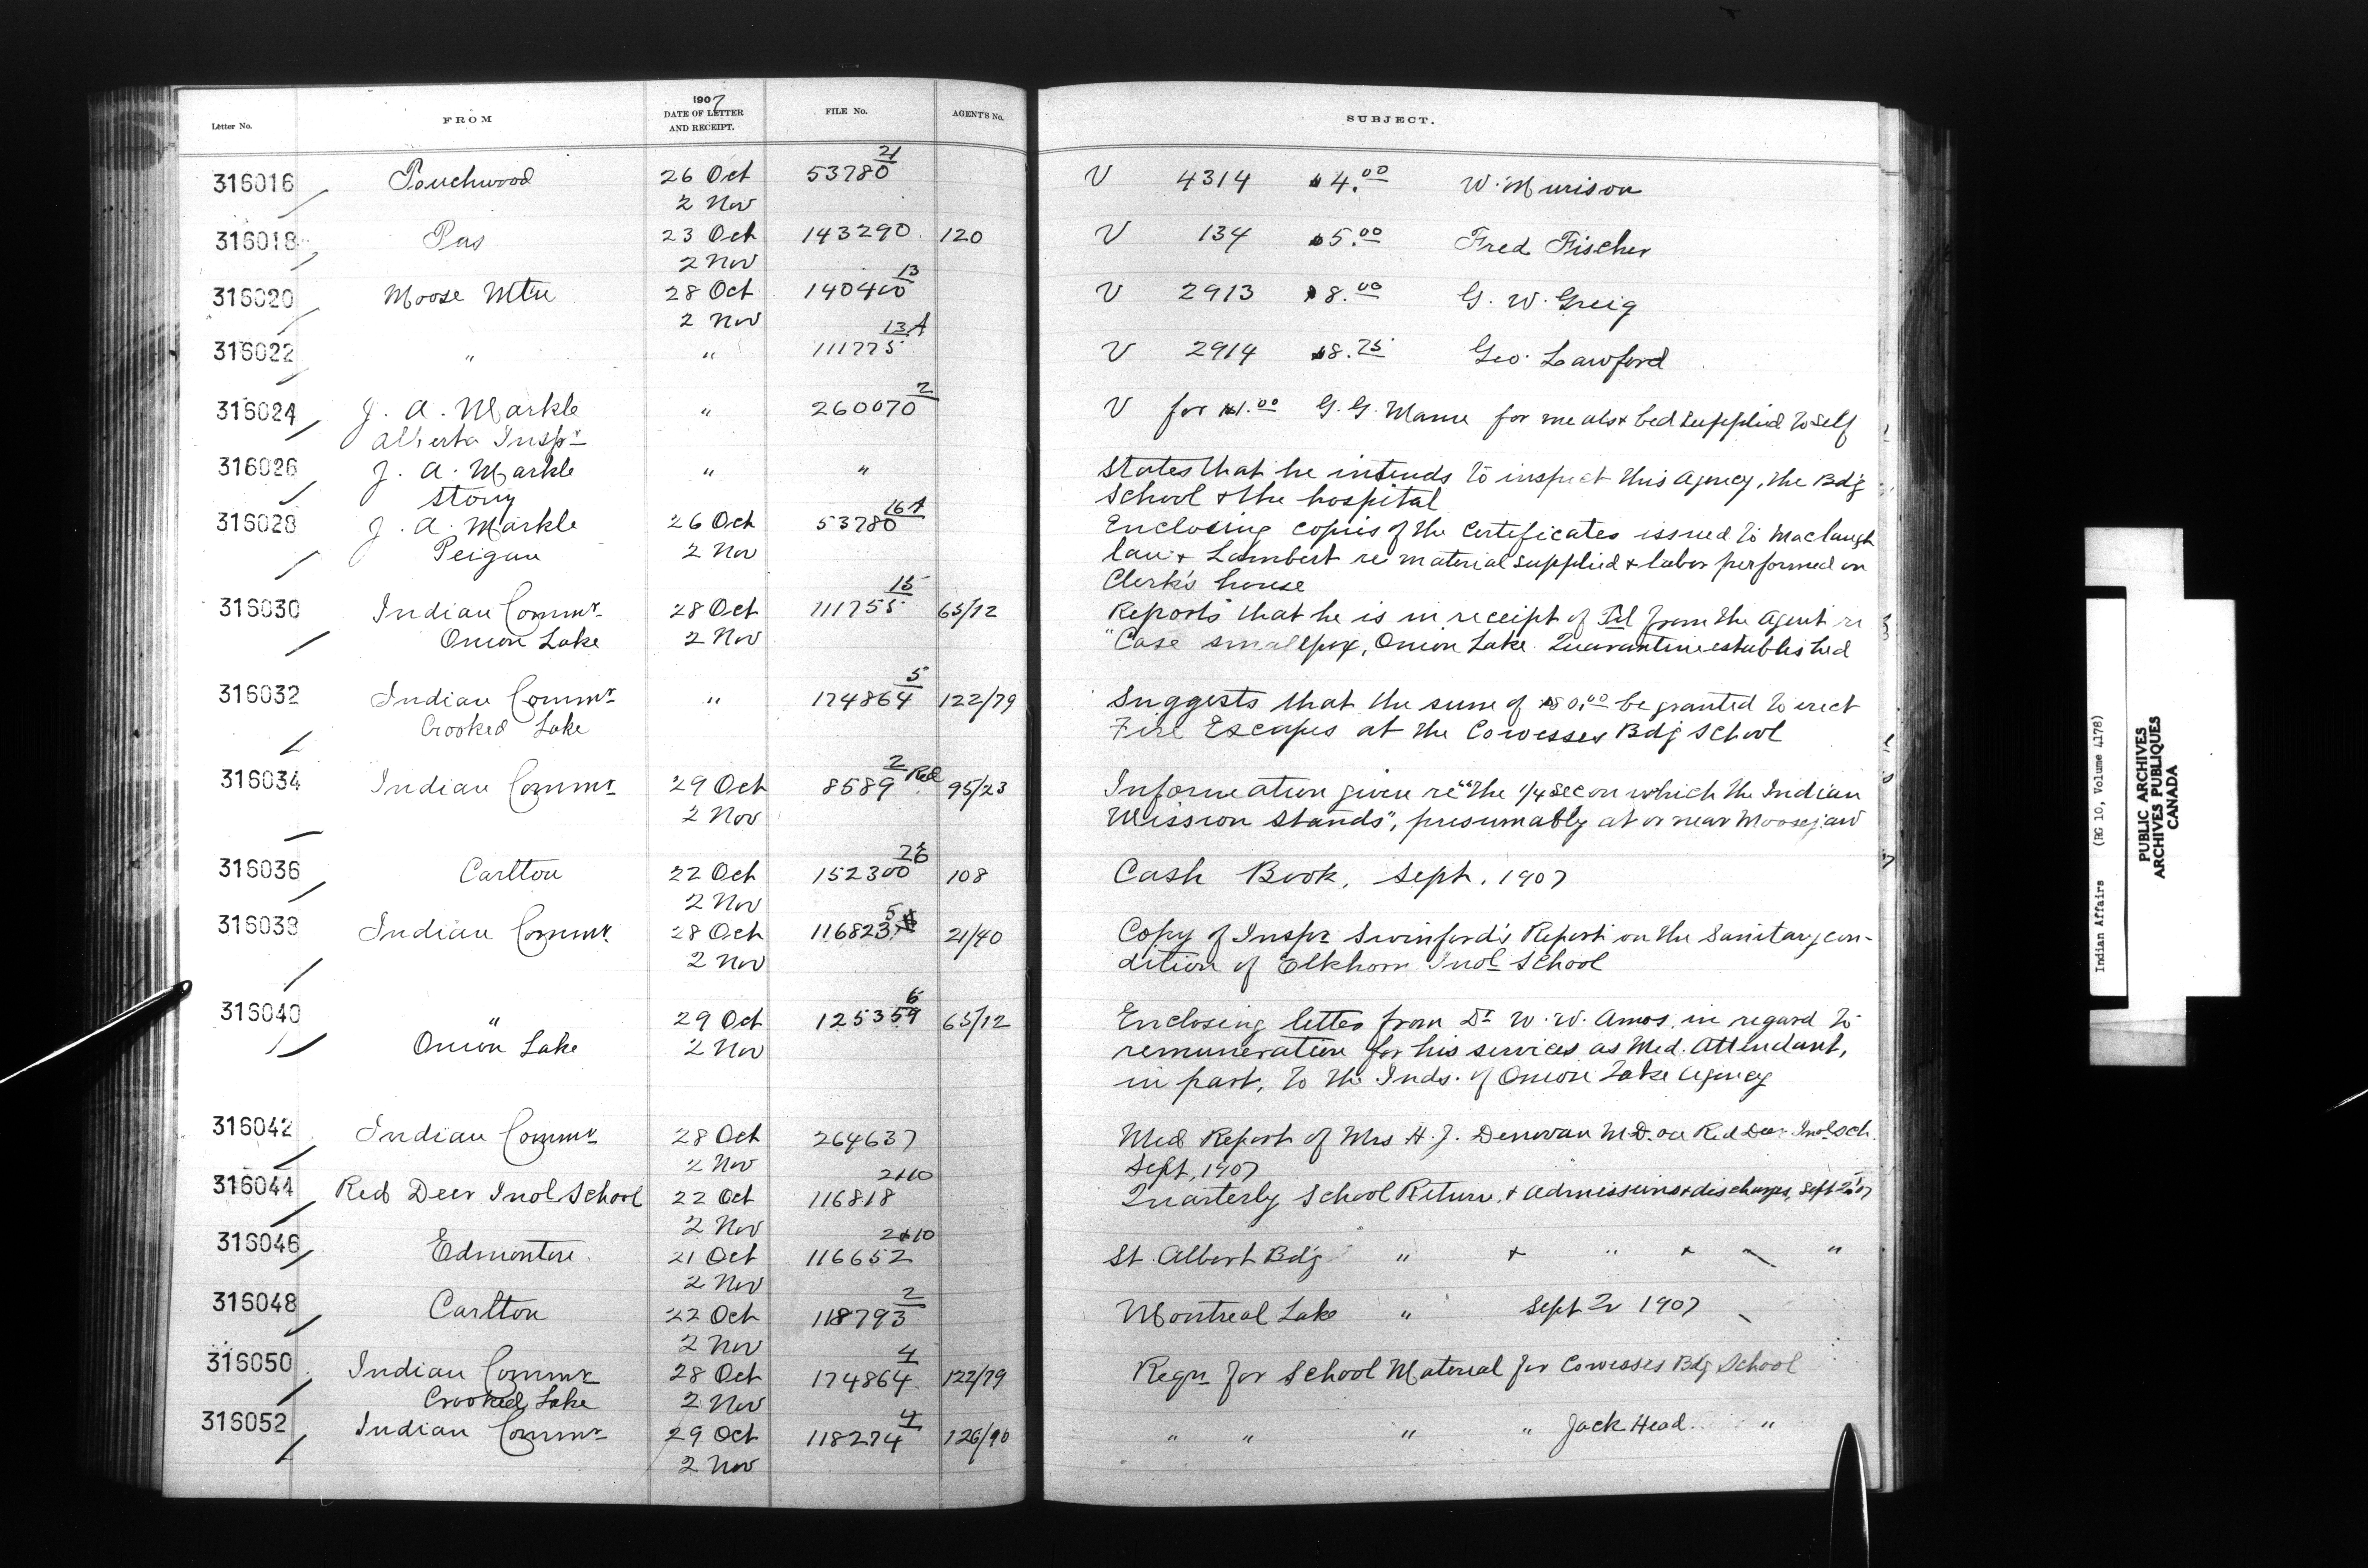 1907
Letter No. FROM DATE OF LETTER AND RECEIPT. FILE No. AGENT'S No. SUBJECT.
316016 Pouchwood 26 Oct 53780 21 V 4314 $4.00 W. Murison
2 Nov
316018 Pas 23 Oct 143290 120 V 134 $5.00 Fred Fischer
2 Nov
316020 Moose Mtn 28 Oct 140400 13 V 2913 $8.00 G. W. Greig
2 Nov
316022 " " 111775 13A V 2914 $8.75 Geo. Lawford
316024 J. A. Markle " 260070 2 V for $1.00 G. G. Mann for meals & bed supplied to self
Alberta Inspr
316026 J. A. Markle " " States that he intends to inspect this Agency, the Bdg
Stony School & the hospital
316028 J. A. Markle 26 Oct 53780 16A Enclosing copies of the Certificates issued to Maclaugh
Peigan 2 Nov lan & Lambert re material supplied & labor performed on
Clerk's house
316030 Indian Commr 28 Oct 111755 15 63/12 Reports that he is in receipt of Tel from the Agent re
Onion Lake 2 Nov "Case smallpox, Onion Lake. Quarantine established
316032 Indian Commr " 174864 5 122/79 Suggests that the sum of $80.00 be granted to erect
Crooked Lake Fire Escapes at the Cowesses Bdg School
316034 Indian Commr 29 Oct 8589 2 Red 95/23 Information given re "the 1/4 sec on which the Indian
2 Nov Mission stands", presumably at or near Moosejaw
316036 Carlton 22 Oct 152300 26 108 Cash Book, Sept. 1907
2 Nov
316038 Indian Commr 28 Oct 116823 5 21/40 Copy of Inspr Swinford's Report on the Sanitary con-
2 Nov dition of Elkhorn Indl School
316040 " 29 Oct 125359 6 63/12 Enclosing letter from Dr W. W. Amos, in regard to
Onion Lake 2 Nov remuneration for his services as Med. Attendant,
in part, to the Inds. of Onion Lake Agency
316042 Indian Commr 28 Oct 264637 Med Report of Mrs H. J. Denovan M.D. on Red Deer Indl Sch.
2 Nov Sept, 1907
316044 Red Deer Indl School 22 Oct 116818 2+10 Quarterly School Return, & admissions & discharges, Sept 2r 07
2 Nov
316046 Edmonton 21 Oct 116652 2+10 St. Albert Bdg " & " & "
2 Nov
316048 Carlton 22 Oct 118793 2 Montreal Lake " Sept 2r 1907
2 Nov
316050 Indian Commr 28 Oct 174864 4 122/79 Requn for School Material for Cowesses Bdg School
Crooked Lake 2 Nov
316052 Indian Commr 29 Oct 118274 4 126/90 " " " " Jack Head "
2 Nov
Indian Affairs (RG 10, Volume 4178)
PUBLIC ARCHIVES
ARCHIVES PUBLIQUES
CANADA